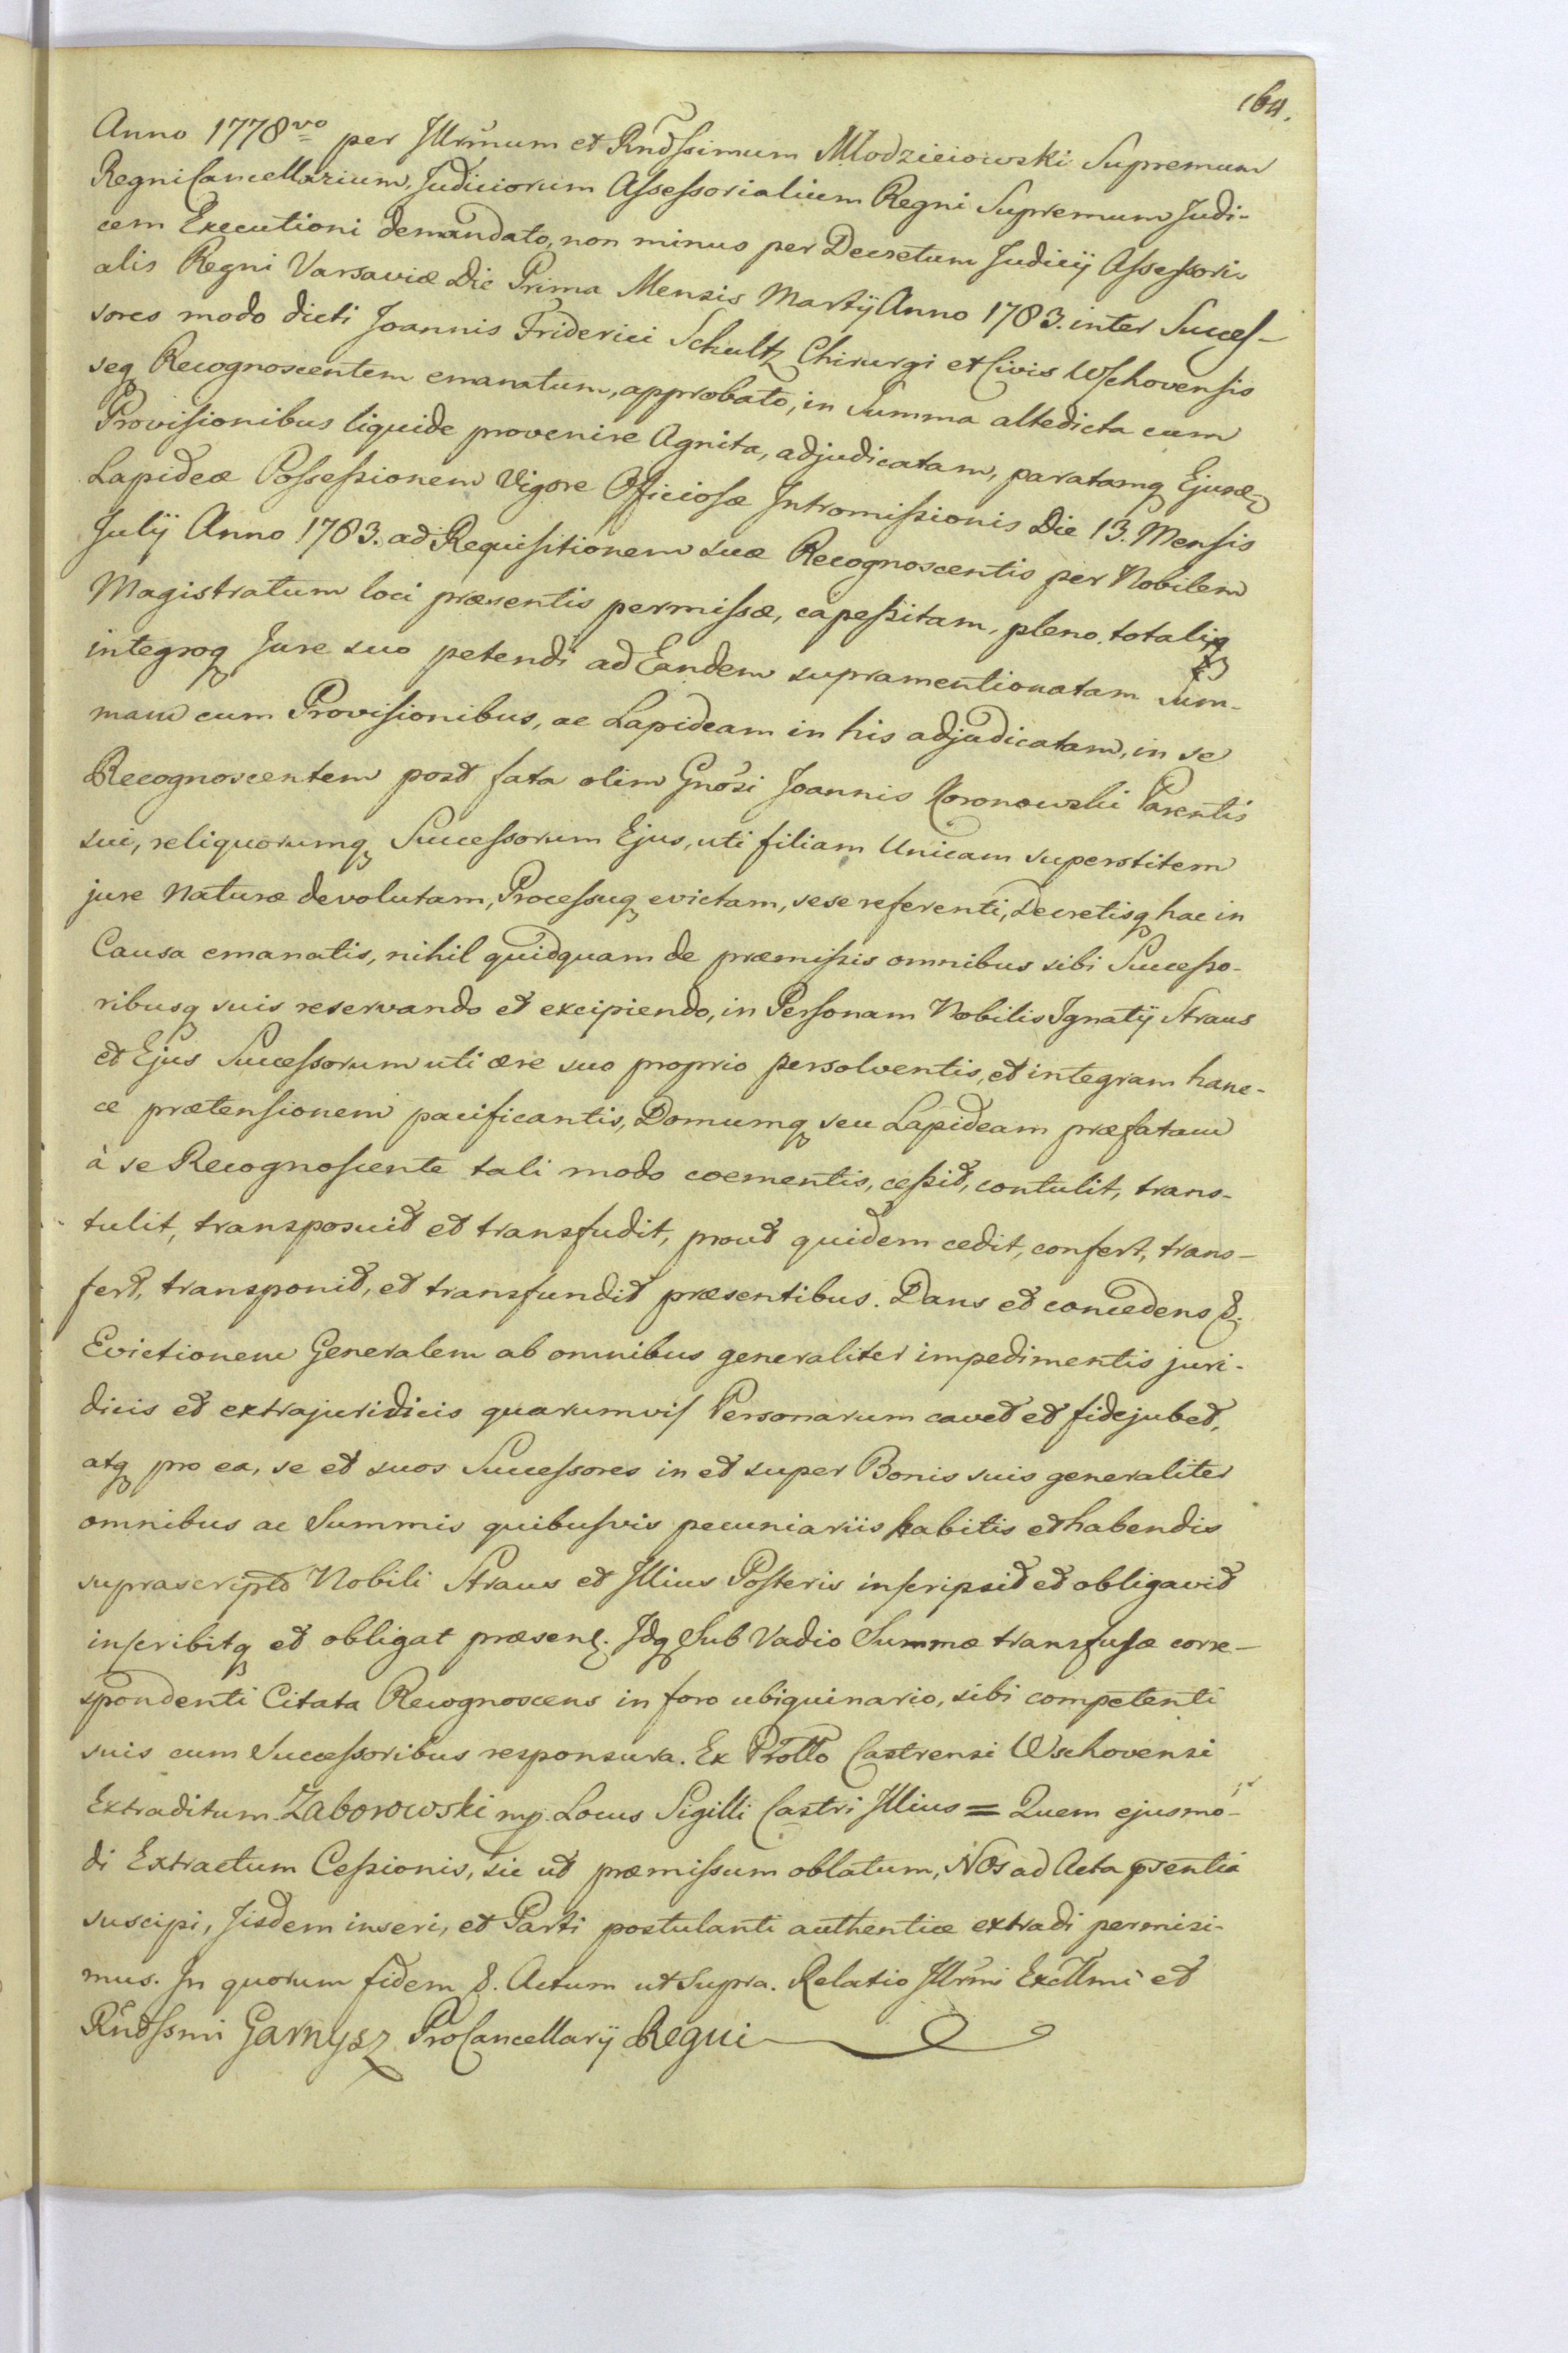 164.
Anno 1778vo per Illrmum et Rndssimum Młodzieiowski Supremum
Regni Cancellarium, Judiciorum Assessorialium Regni Supremum Judi-
cem Executioni demandato, non minus per Decretum Judicij Assessori-
alis Regni Varsaviæ Die Prima Mensis Martij Anno 1783. inter Succes-
sores modo dicti Joannis Friderici Schultz Chirurgi et Civis Wschovensis
seq Recognoscentem emanatum, approbato, in Summa altedicta cum
Provisionibus liquide provenire Agnita, adjudicatam, paratamq Ejusd
Lapideæ Possessionem Vigore Officiosæ Intromissionis Die 13. Mensis
Julij Anno 1783. ad Requisitionem suæ Recognoscentis per Nobilem
Magistratum loci præsentis permissæ, capessitam, pleno, totaliq
integroq Jure suo petendi ad Eandem supramentionatam Sum-
mam cum Provisionibus, ac Lapideam in his adjudicatam, in se
Recognoscentem post fata olim Gnosi Joannis Koronowski Parentis
sui, reliquorumq Successorum Ejus, uti filiam Unicam superstitem
jure Naturæ devolutam, Processuq evictam, sese referenti, Decretisq hac in
Causa emanatis, nihil quidquam de præmissis omnibus sibi Successo-
ribusq suis reservando et excipiendo, in Personam Nobilis Ignatij Straus
et Ejus Successorum uti ære suo proprio persolventis, et integram hanc-
ce prætensionem pacificantis, Domumq seu Lapideam præfatam
à se Recognoscente tali modo coementis, cessit, contulit, trans-
tulit, transposuit et transfudit, prout quidem cedit, confert, trans-
fert, transponit, et transfundit præsentibus. Dans et concedens &.
Evictionem Generalem ab omnibus generaliter impedimentis juri-
dicis et extrajuridicis quarumvis Personarum cavet et fidejubet,
atq pro ea, se et suos Successores in et super Bonis suis generaliter
omnibus ac Summis quibusvis pecuniariis habitis et habendis
suprascripto Nobili Straus et Illius Posteris inscripsit et obligavit
inscribitq et obligat præsent. Idq Sub Vadio Summæ transfusæ corre-
spondenti Citata Recognoscens in foro ubiquinario, sibi competenti
suis cum Successoribus responsura. Ex Protlo Castrensi Wschovensi
Extraditum. Zaborowski mp. Locus Sigilli Castri Illius = Quem ejusmo-
di Extractum Cessionis, sic ut præmissum oblatum, Nos ad Acta psentia
suscipi, Iisdem inseri, et Parti postulanti authentice extradi permisi-
mus. In quorum fidem &. Actum ut Supra. Relatio Illrmi Excllmi et
Rndssmi Garnysz ProCancellarij Regni